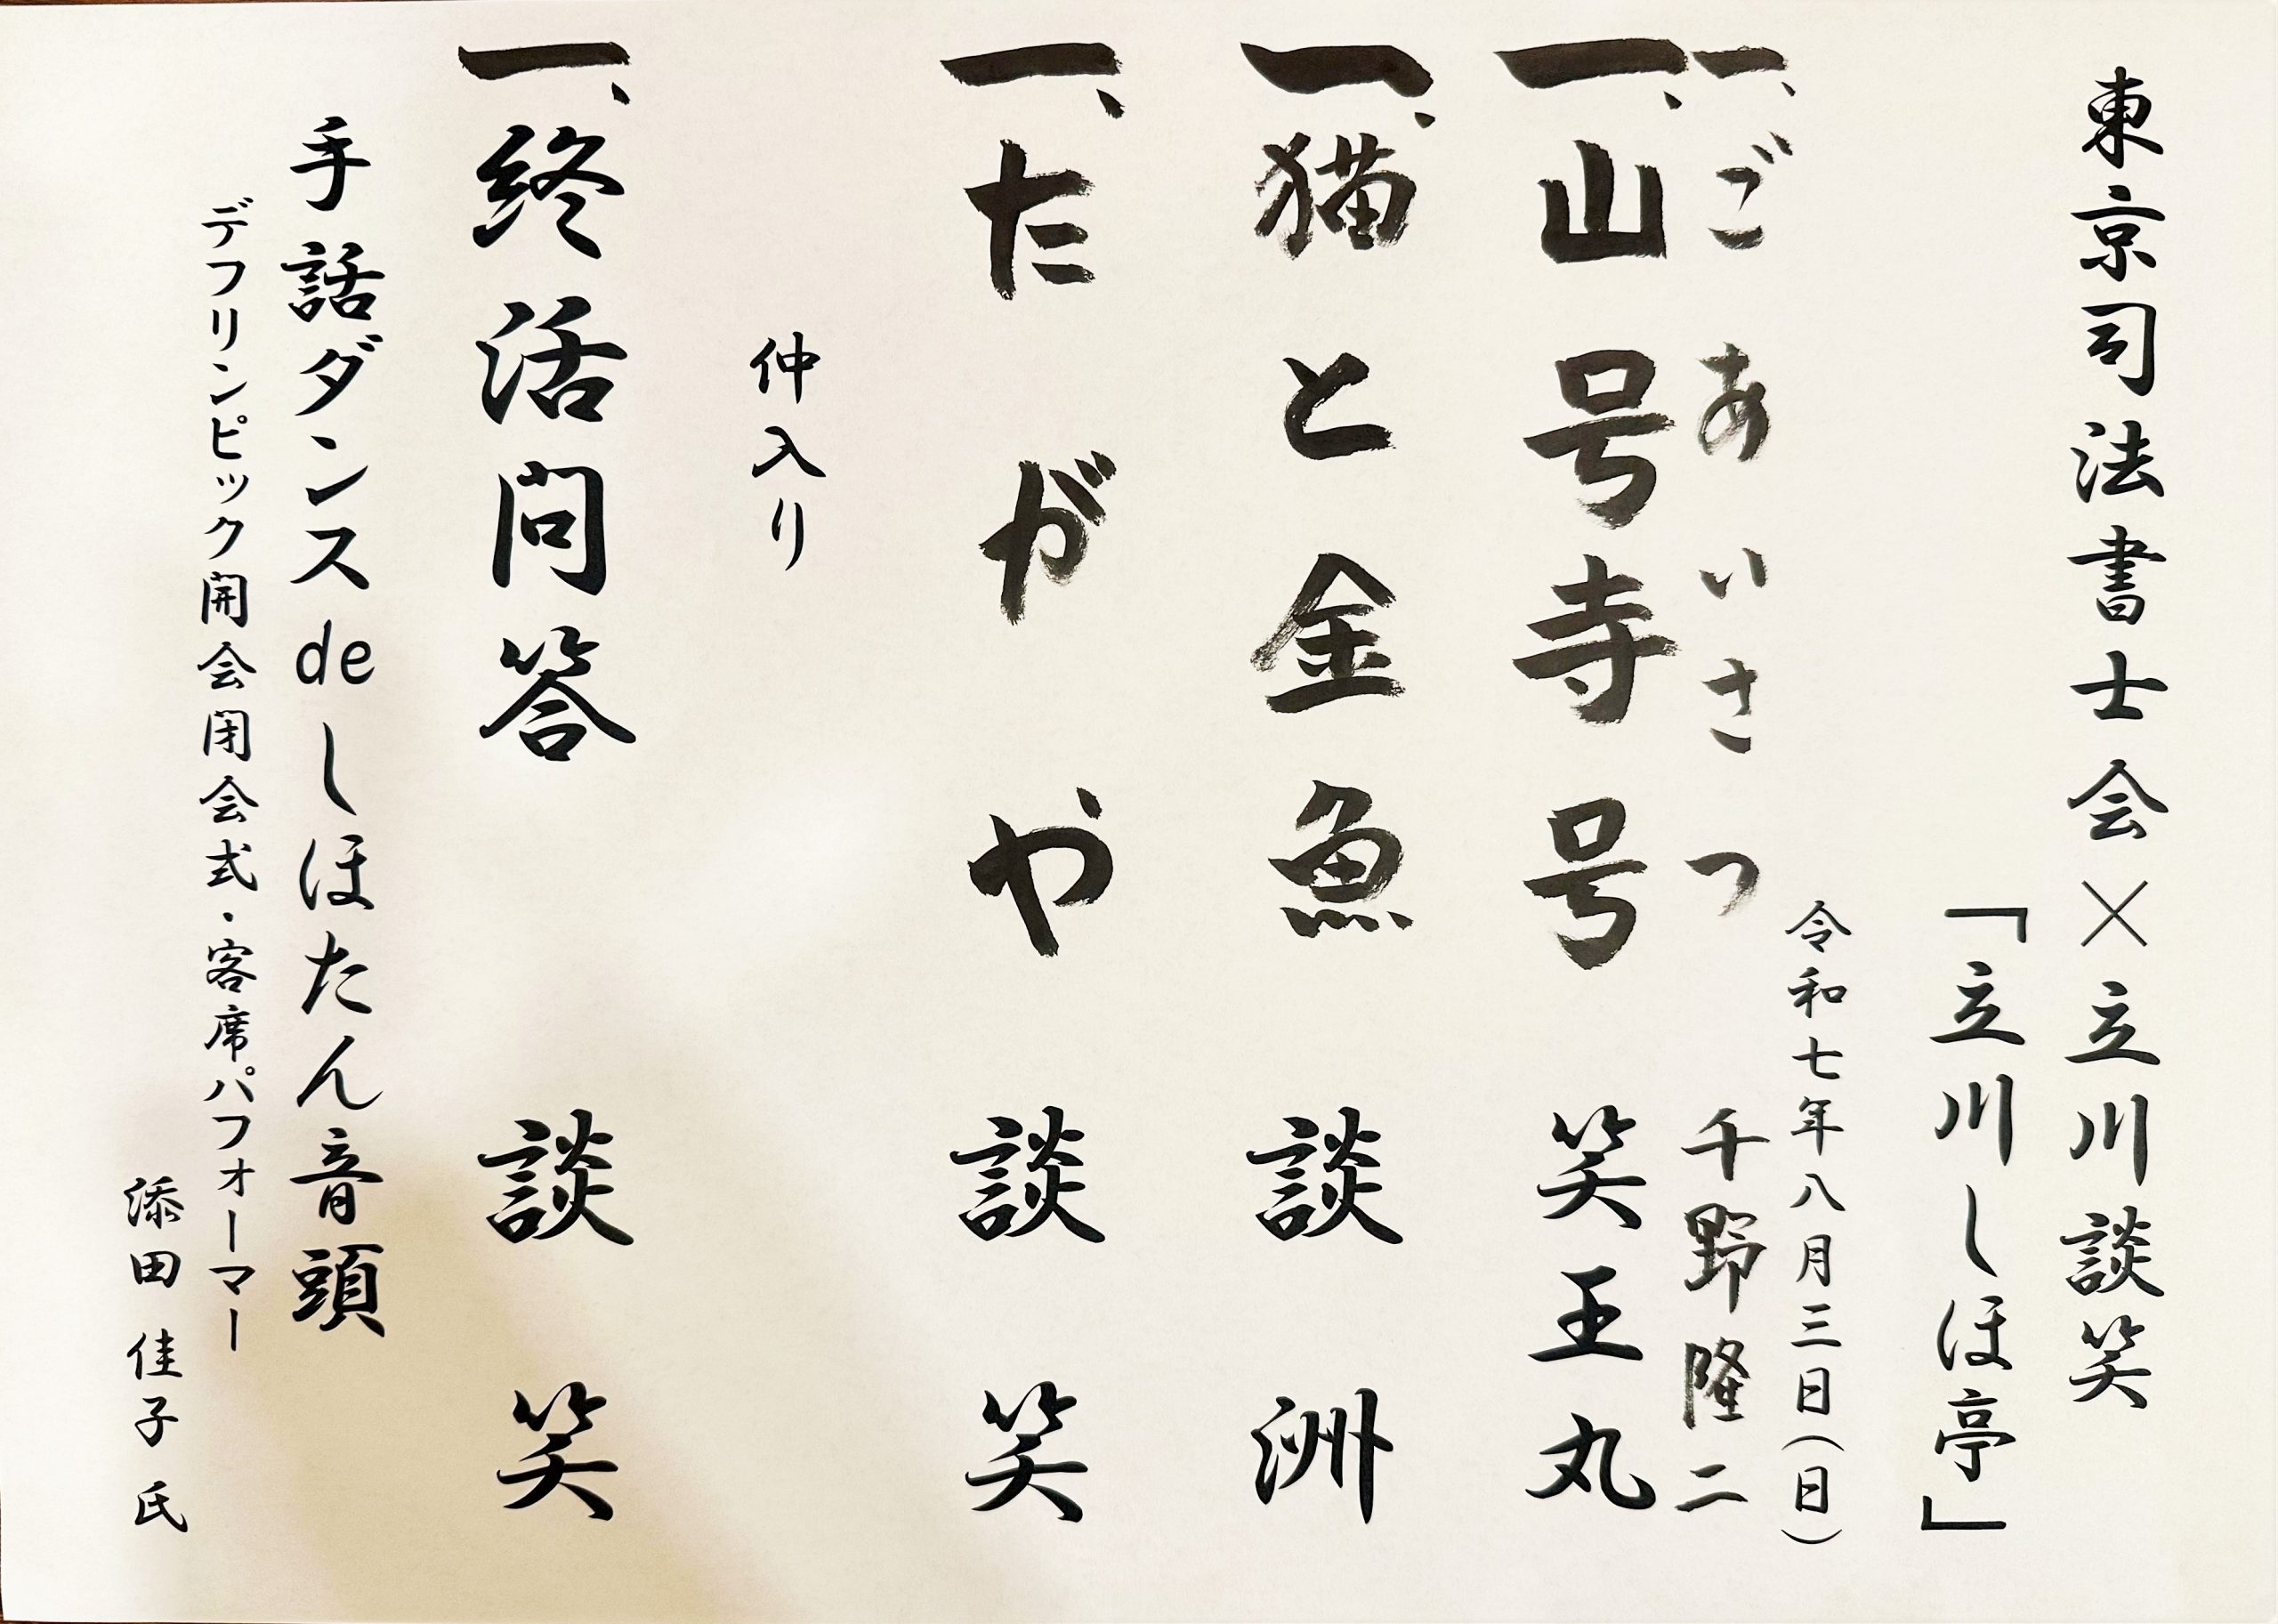 東京司法書士会×立川談笑
「立川しほ亭」
令和七年八月三日(日)
一、ごあいさつ 千野隆二
一、山号寺号 笑王丸
一、猫と金魚 談洲
一、たがや 談笑
仲入り
一、終活問答 談笑
手話ダンスdeしほたん音頭
デフリンピック開会閉会式・客席パフォーマー
添田佳子氏